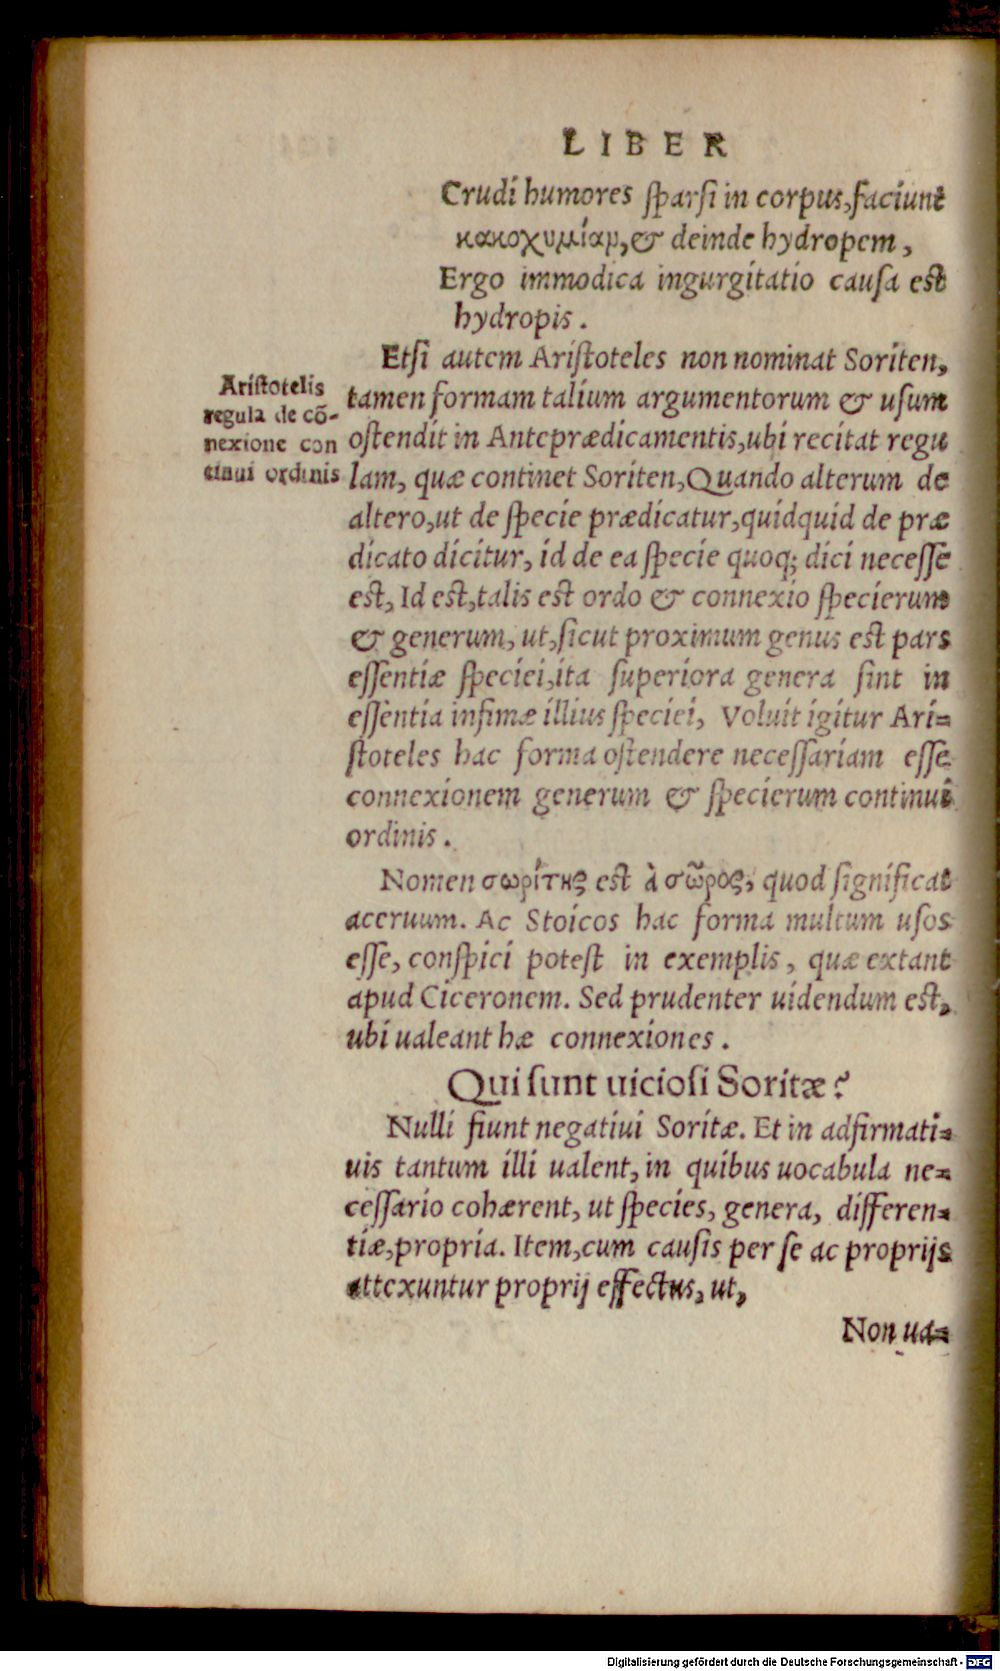 LIBER
Crudi humores sparsi in corpus, faciunt
κακοχυμίαμ, & deinde hydropem,
Ergo immodica ingurgitatio causa est
hydropis.
Etsi autem Aristoteles non nominat Soriten,
Aristotelis
regula de cō-
nexione con
tinui ordinis
tamen formam talium argumentorum & usum
ostendit in Anteprædicamentis, ubi recitat regu
lam, quæ continet Soriten, Quando alterum de
altero, ut de specie prædicatur, quidquid de præ
dicato dicitur, id de ea specie quoq; dici necesse
est, Id est, talis est ordo & connexio specierum
& generum, ut, sicut proximum genus est pars
essentiæ speciei, ita superiora genera sint in
essentia infimæ illius speciei, Voluit igitur Ari=
stoteles hac forma ostendere necessariam esse
connexionem generum & specierum continui
ordinis.
Nomen σωρίτης est à σῶρος, quod significat
aceruum. Ac Stoicos hac forma multum usos
esse, conspici potest in exemplis, quæ extant
apud Ciceronem. Sed prudenter uidendum est,
ubi ualeant hæ connexiones.
Qui sunt uiciosi Soritæ?
Nulli fiunt negatiui Soritæ. Et in adfirmati=
uis tantum illi ualent, in quibus uocabula ne=
cessario cohærent, ut species, genera, differen=
tiæ, propria. Item, cum causis per se ac proprijs
attexuntur proprij effectus, ut,
Non ua=
Digitalisierung gefördert durch die Deutsche Forschungsgemeinschaft - DFG